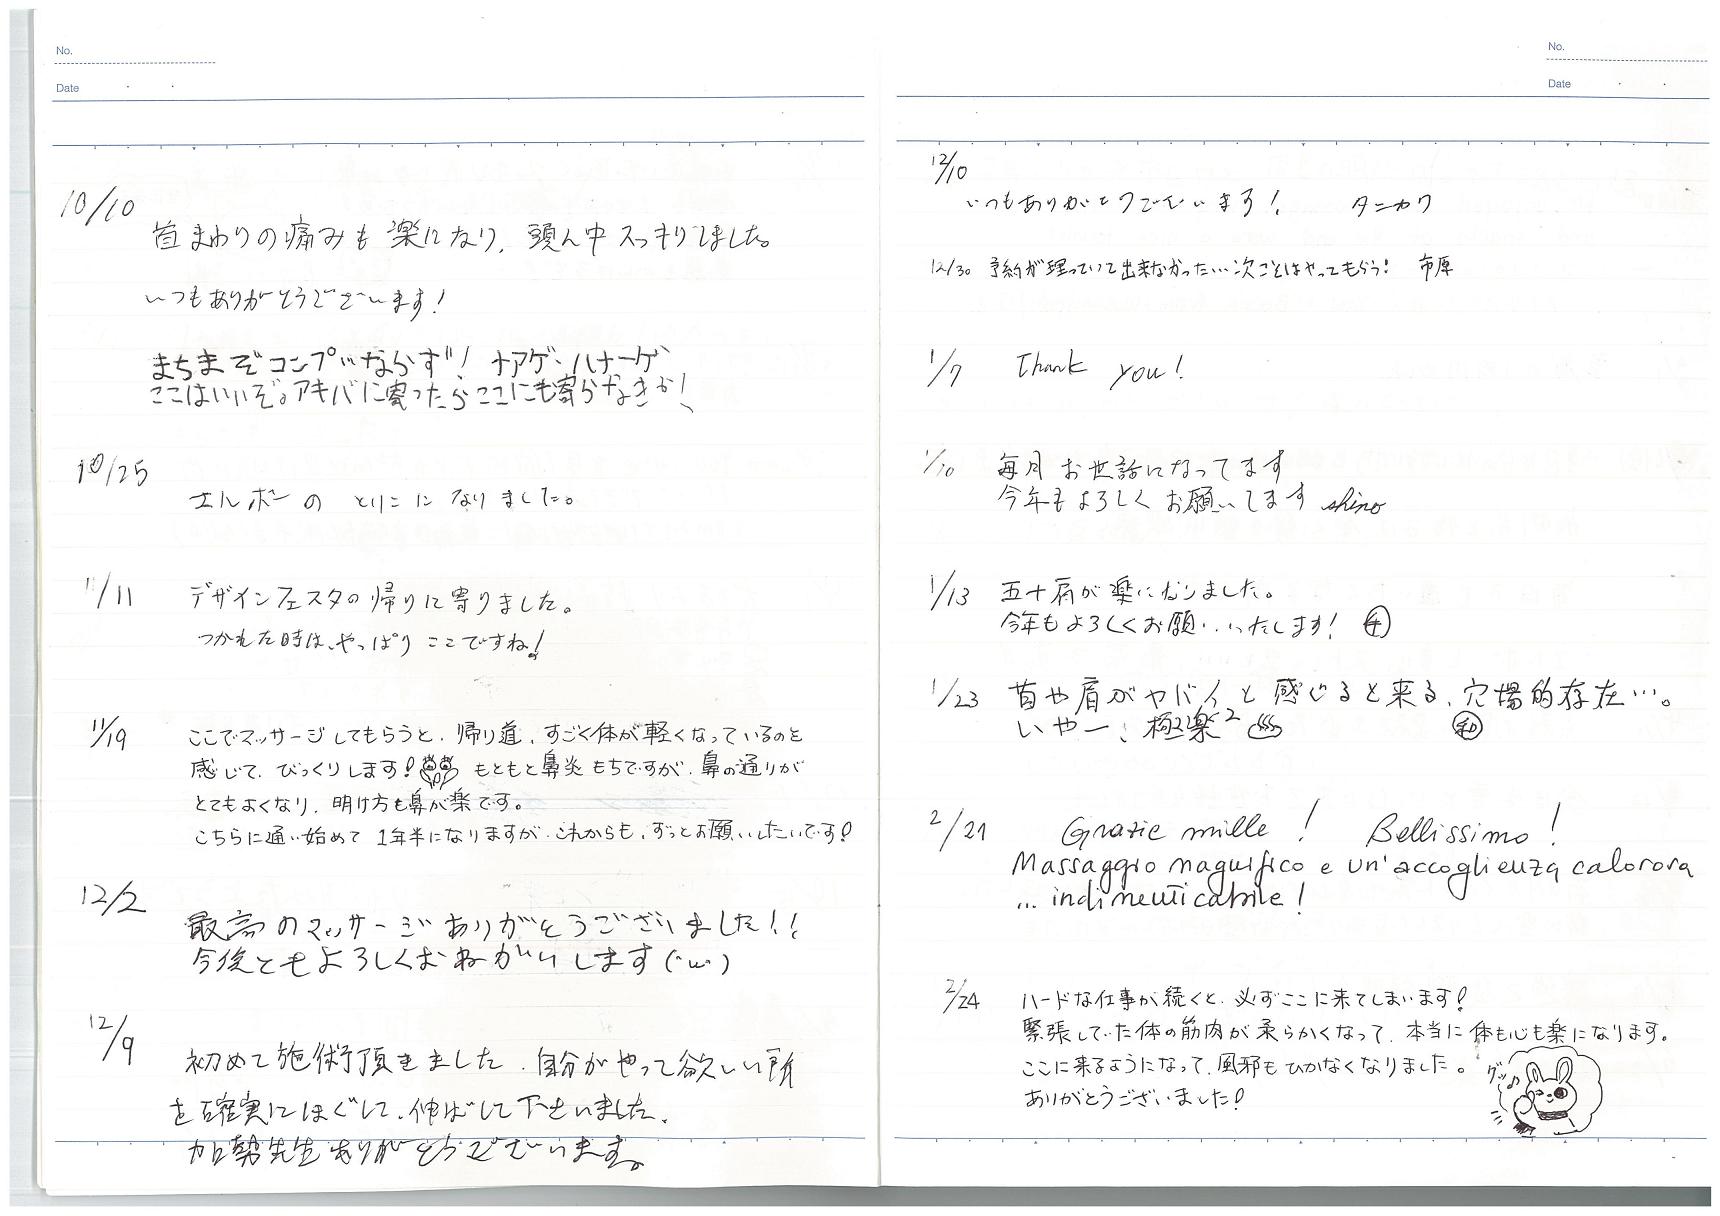 No.
Date
10/10
首まわりの痛みも楽になり、頭ん中スッキリしました。
いつもありがとうございます!
まちまぞコンプ ならず!
ここはいいぞ。アキバに寄ったらここにも寄らなきゃ!
10/25
エルボーの とりこに なりました。
11/11
デザインフェスタの帰りに寄りました。
つかれた時は、やっぱり ここですね!
11/19
ここでマッサージしてもらうと、帰り道、すごく体が軽くなっているのを
感じて、びっくりします! もともと鼻炎もちですが、鼻の通りが
とてもよくなり、明け方も鼻が楽です。
こちらに通い始めて 1年半になりますが、これからも、ずっとお願いしたいです!
12/2
最高のマッサージありがとうございました!!
今後ともよろしくおねがいします(・ω・)
12/9
初めて施術頂きました。自分がやって欲しい所
を確実にほぐして、伸ばして下さいました。
加勢先生ありがとうございます。
No.
Date
12/10
いつもありがとうございます! タニカワ
12/30 予約が埋っていて出来なかった…次こそはやってもらう! 市原
1/7 Thank you!
1/10 毎月お世話になってます
今年もよろしくお願いします shino
1/13 五十肩が楽になりました。
今年もよろしくお願いいたします!
1/23 首や肩がヤバイと感じると来る、穴場的存在…。
いやー、極楽2 ㊙
2/21 Grazie mille! Bellissimo!
Massaggio magnifico e un'accoglienza calorosa
... indimenticabile!
2/24 ハードな仕事が続くと、必ずここに来てしまいます!
緊張していた体の筋肉が柔らかくなって、本当に体も心も楽になります。
ここに来るようになって、風邪もひかなくなりました。
グッ♪
ありがとうございました!